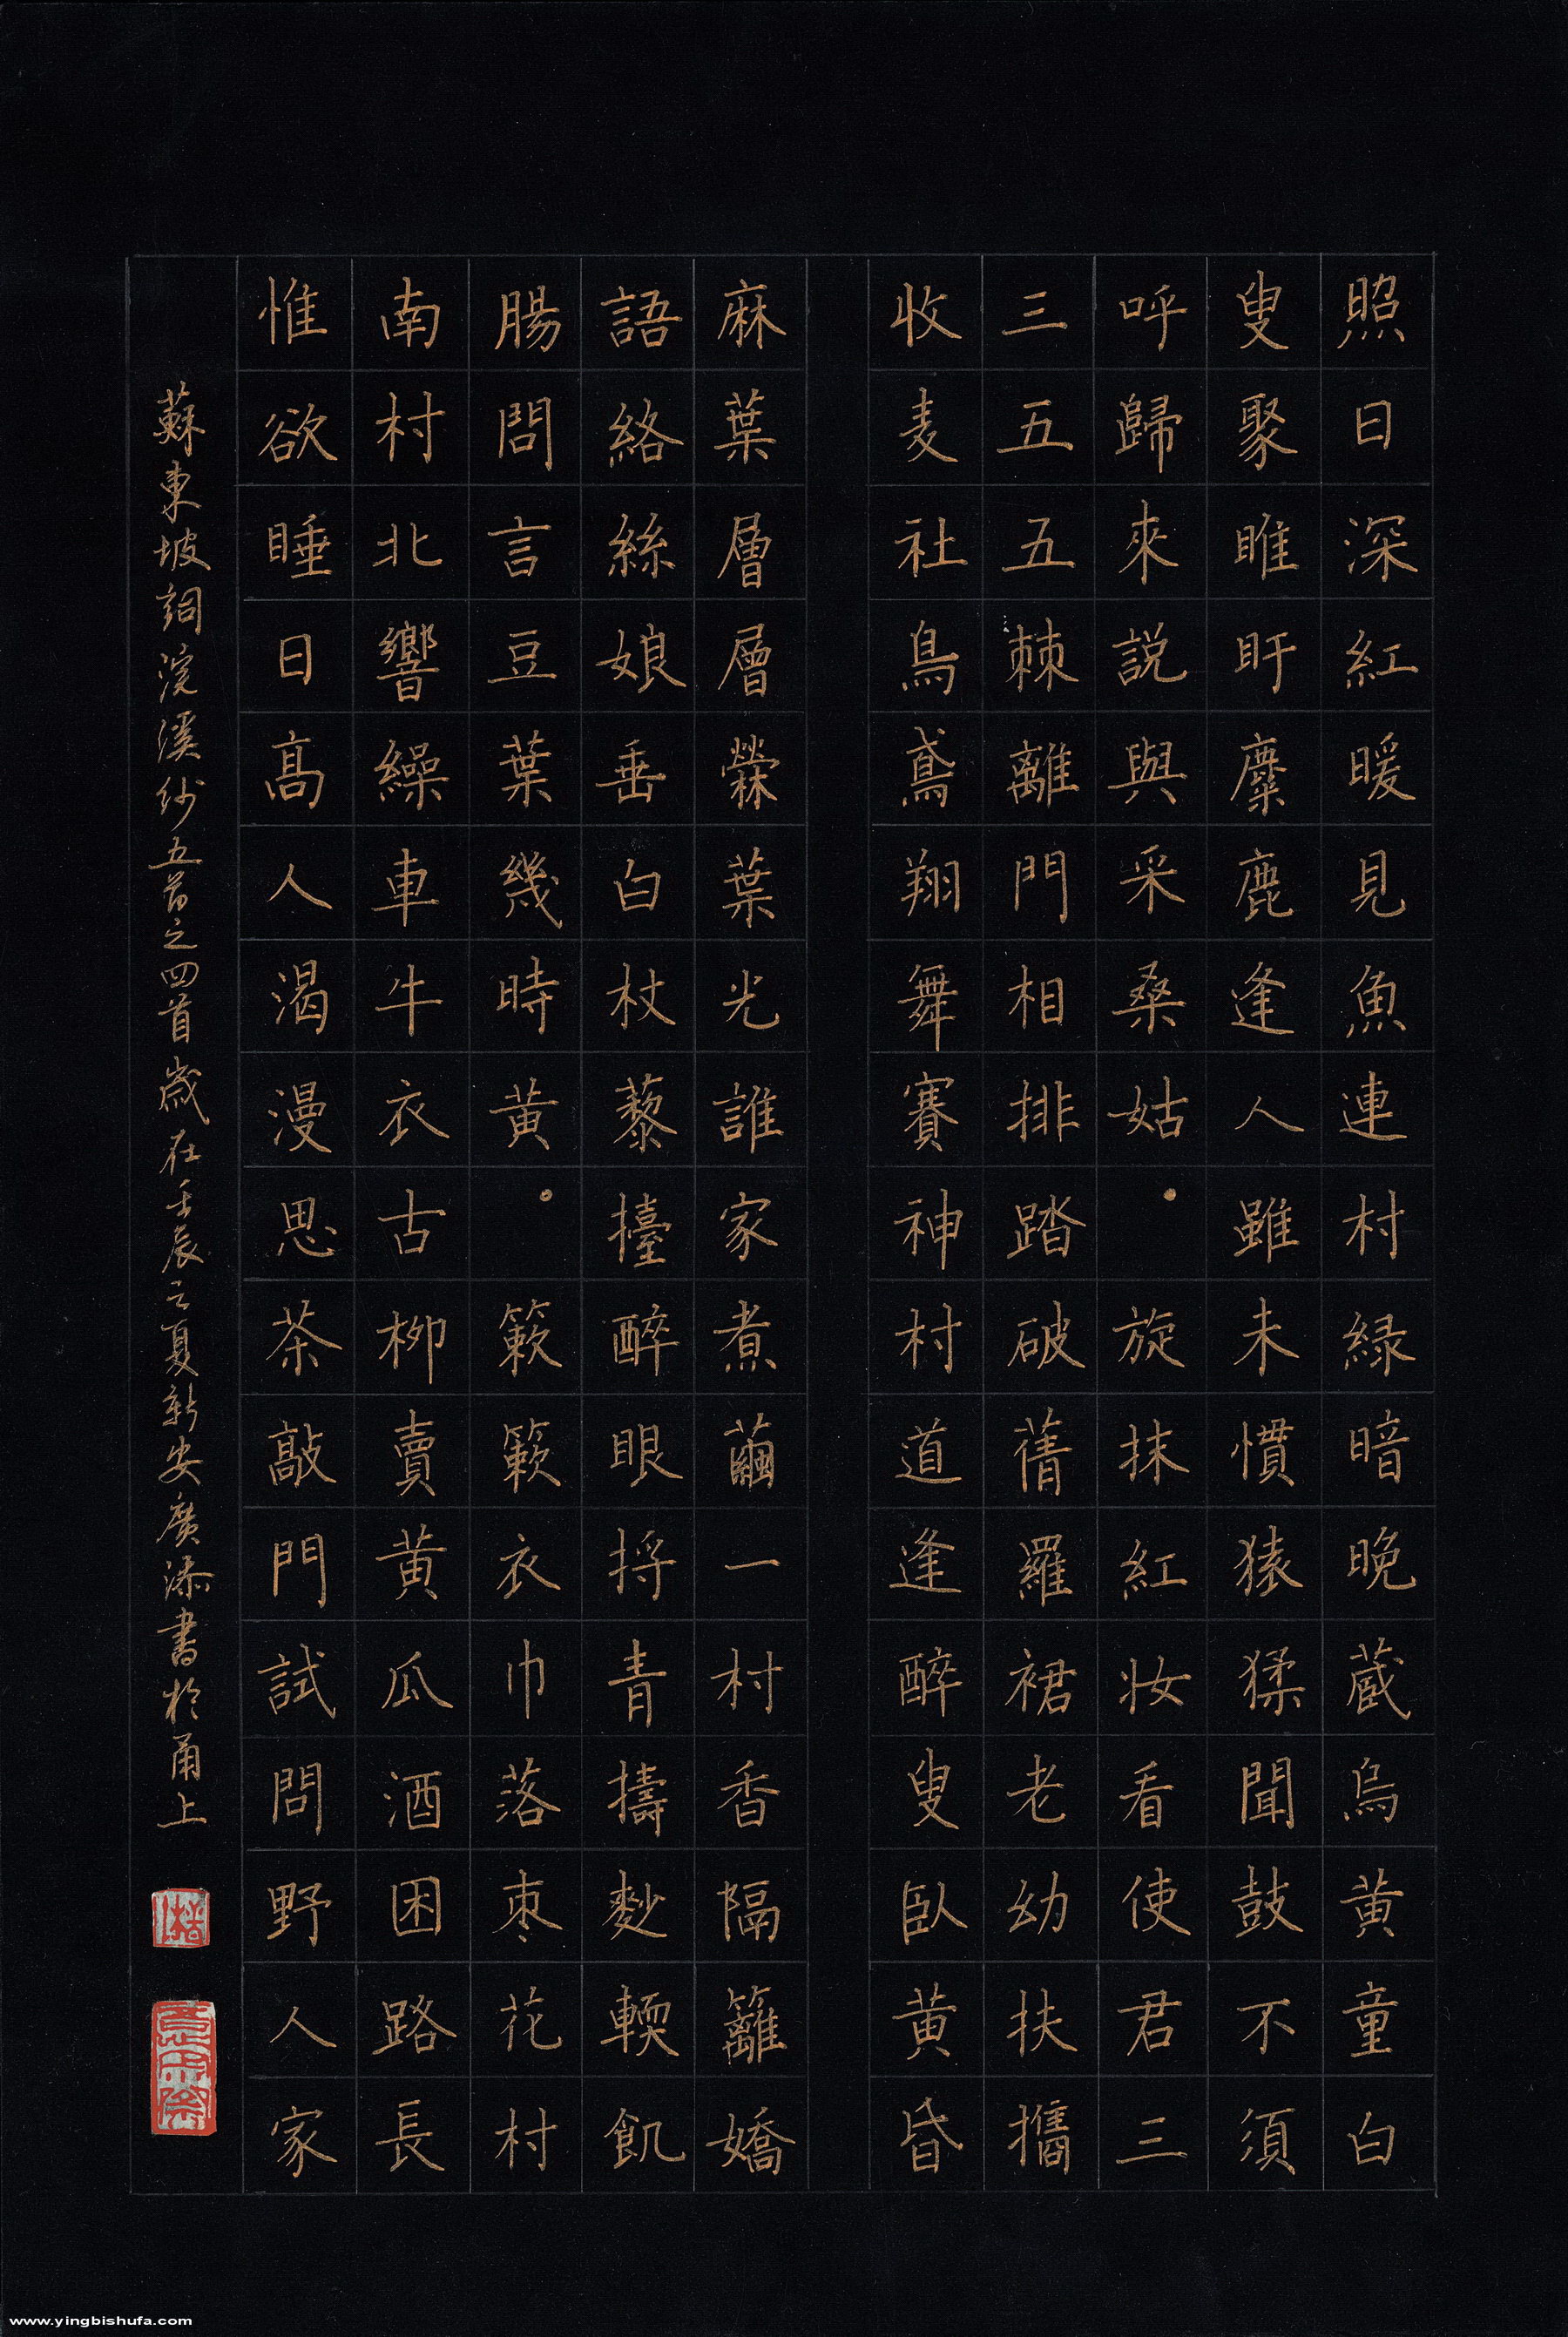 照日深紅暖見魚連村緑暗晚蔵烏黄童白
叟聚睢盱麋鹿逢人雖未慣猿猱聞鼓不須
呼歸來説與采桑姑•旋抹紅妆看使君三
三五五棘離門相排踏破蒨羅裙老幼扶攜
收麦社鳥鳶翔舞賽神村道逢醉叟臥黄昏
麻葉層層檾葉光誰家煮繭一村香隔籬嬌
語絡絲娘垂白杖藜擡醉眼捋青擣麨輭飢
腸問言豆葉幾時黄•簌簌衣巾落枣花村
南村北響繰車牛衣古柳賣黄瓜酒困路長
惟欲睡日髙人渴漫思茶敲門試問野人家
蘇東坡詞浣溪紗五首之四首歲在壬辰之夏新安廣添書於甬上
www.yingbishufa.com